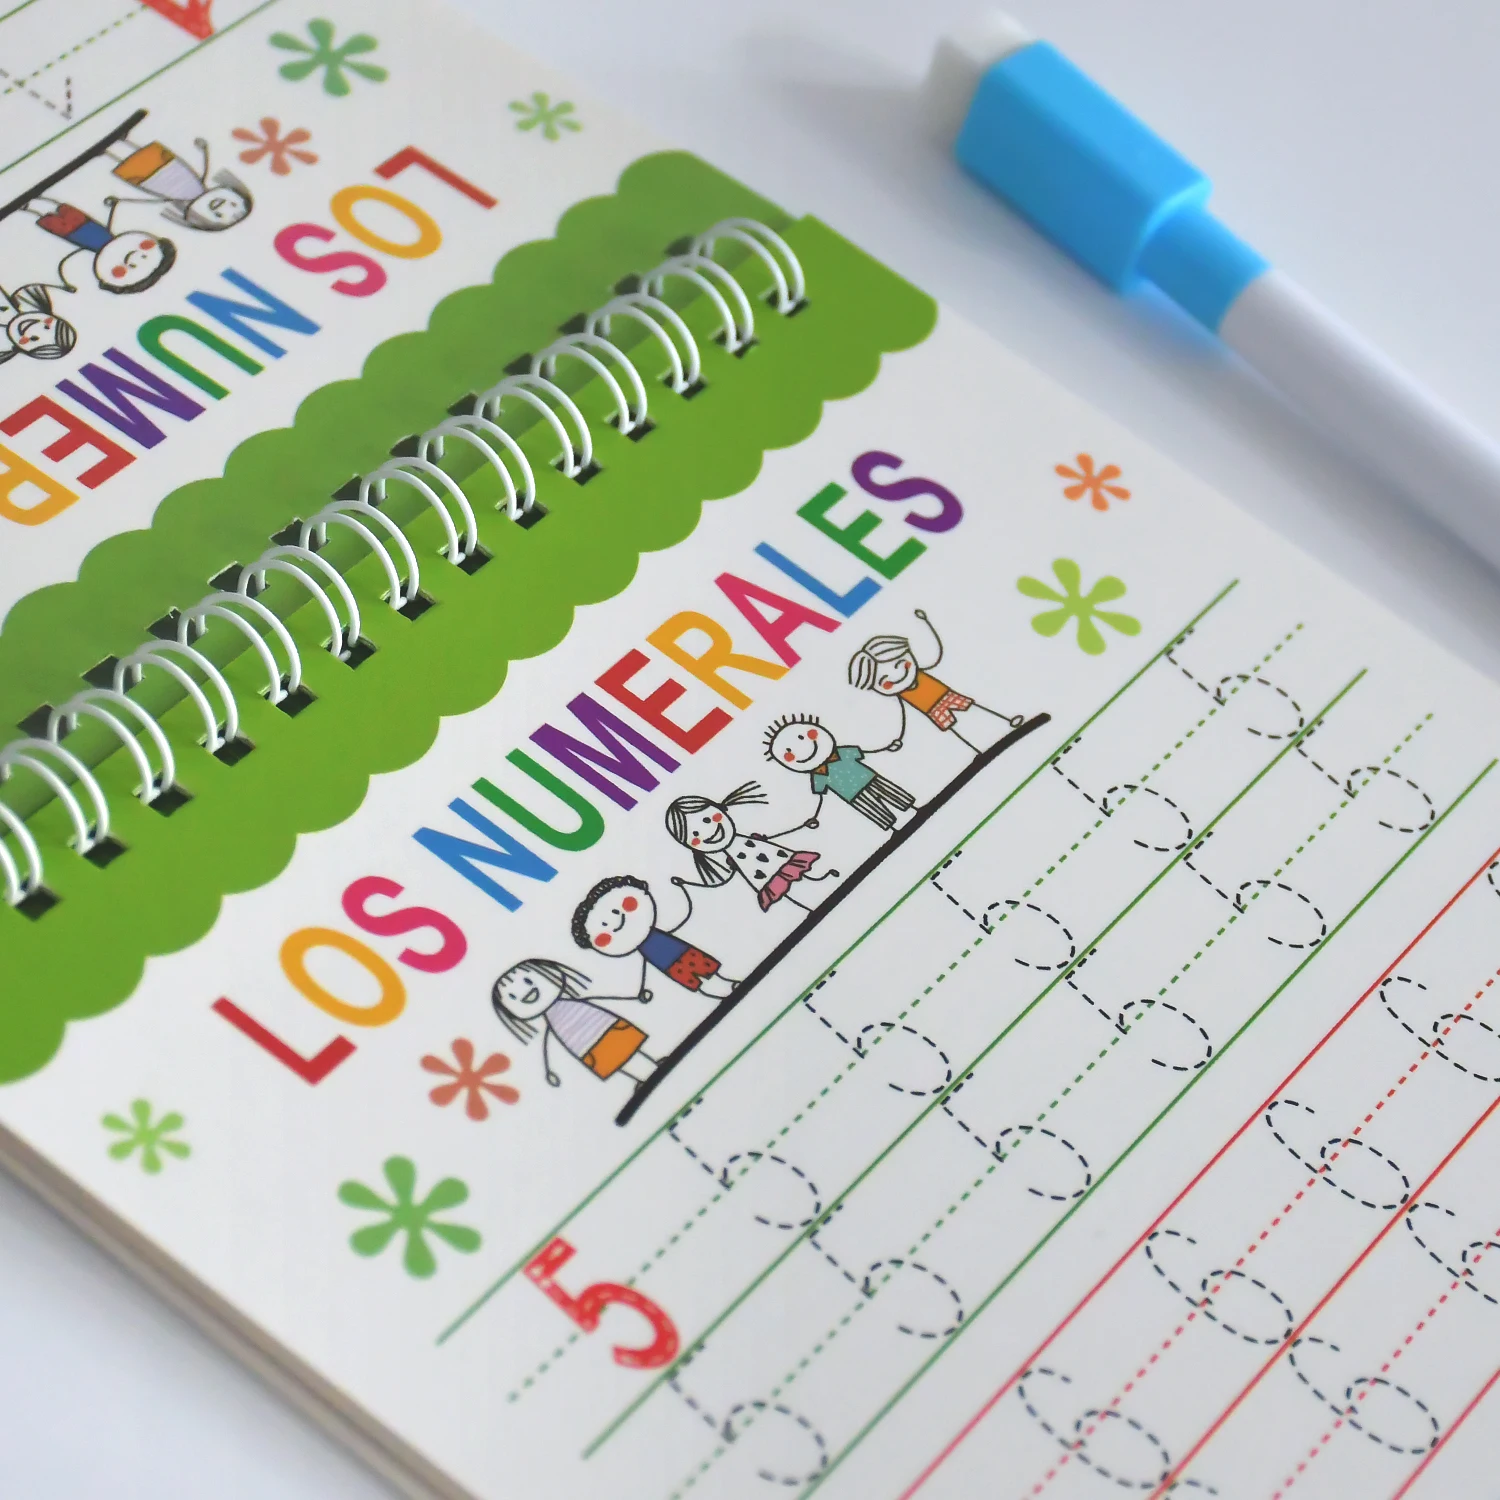 LOS NUMERALES
5
LOS NUMER